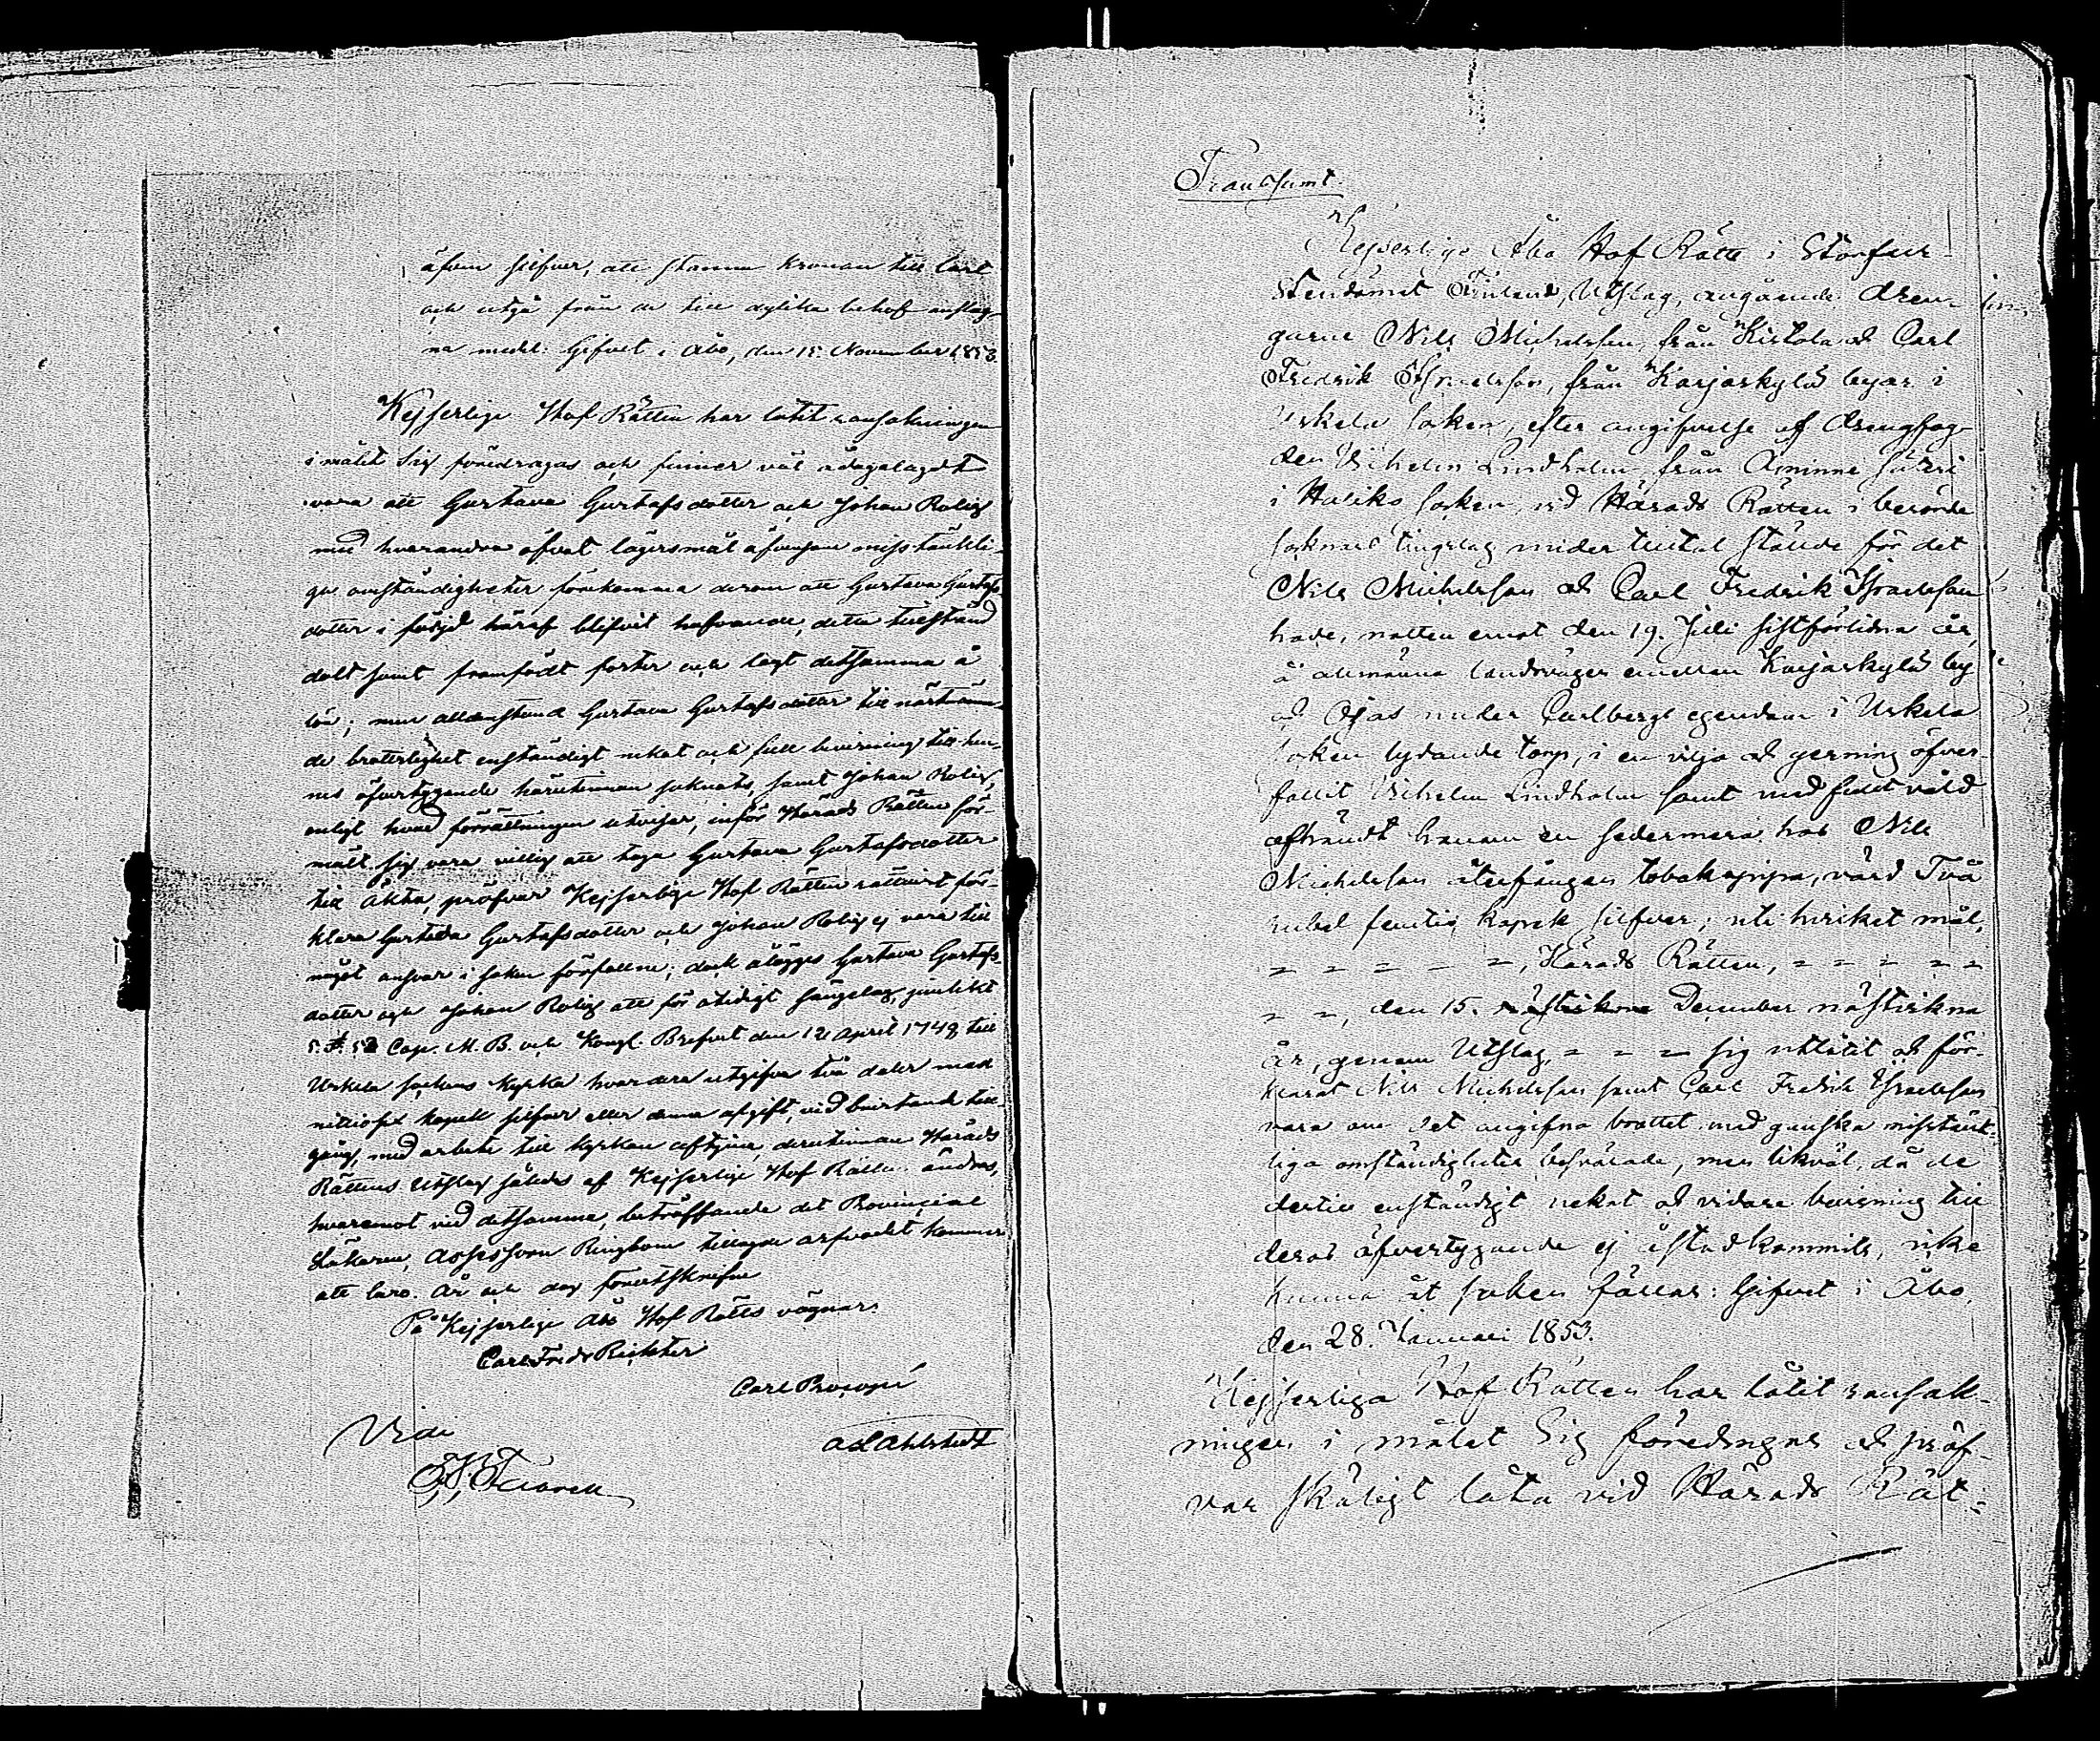 äfven silfver, att stanna Kronan till last
och utgå från de till dylika behof anslag-
na medel. Gifvet i Åbo, den 15 November 1853.
Kejserlige Hof Rätten har låtit ransakningen
i målet Sig föredragas och finner väl ådagalagdt
vara att Gustava Gustafsdotter och Johan Rolig
med hvarandra öfvat lägersmål äfvensom misstänkli-
ga omständigheter förekomma derom att Gustava Gustafs-
dotter i följd häraf blifvit hafvande, detta tillstånd
dolt samt framfödt foster och lagt detsamma å
lön; men alldenstund Gustava Gustafsdotter till nästnämn-
de brottslighet enständigt nekat och full bevisning till hen-
nes öfvertygande härutinnan saknats, samt Johan Rolig,
enligt hvad förrättningen utvisar, inför Härads Rätten för-
mält sig vara villig att taga Gustava Gustafsdotter
till äkta, pröfvar Kejserlige Hof Rätten rättvist för-
klara Gustava Gustafsdotter och Johan Rolig ej vara till
något ansvar i saken förfallne; dock ålägges Gustava Gustafs-
dotter och Johan Rolig att för otidigt sängelag, jemlikt
5. §. 53 Cap. M. B. och Kongl. Brefvet den 12 April 1749, till
Uskela sockens Kyrka hvardera utgifva två daler med
nittiosex kopek silfver eller denna afgift, vid bristande till-
gång, med arbete till kyrkan aftjena, derutinnan Härads
Rättens Utslag således af Kejserlige Hof Rätten ändras,
hvaremot vid detsamma, beträffande det Provincial
Läkaren, Assessoren Ringbom tillagde arfvodet kommer
att bero. År och dag förutskrifne
På Kejserlige Åbo Hof Rätts vägnar:
Carl Fredr Richter
Carl
Vidi
Ad Ahlstedt
Transsumt.
Kejserlige Åbo Hof Rätts i Storfur-
stendömet Finland, Utslag, angående Dren-
garne Nils Michelsson, från Kistola och Carl
Fredrik Israelsson, från Karjaskylä byar i
Uskela socken, efter angifvelse af Drengfog-
den Wilhelm Lindholm från Åminne säteri
i Haliko socken, vid Härads Rätten i berörde
socknars tingslag under tilltal stände för det
Nils Michelsson och Carl Fredrik Israelsson
hade, natten emot den 19. Juli sistförlidna år,
å allmänna landsvägen emellan Karjaskylä by
och Ojas under Carlbergs egendom i Uskela
socken lydande torp, i en vilja och gerning öfver-
fallit Wilhelm Lindholm samt med fullt våld
afhändt honom en sedermera hos Nils
Michelsson återfången tobakspipa, värd Två
rubel femtio kopek silfver; uti hvilket mål,
= = = = =, Härads Rätten, = = = = =
= =, den 15. December nästvikne
år, genom Utslag, = = = sig utlåtit och för-
klarat Nils Michelsson samt Carl Fredrik Israelsson
vara om det angifna brottet med ganska misstänk-
liga omständigheter besvärade, men likväl, då de
dertill enständigt nekat och vidare bevisning till
deras öfvertygande ej åstadkommits, icke
kunna åt saken fällas: Gifvet i Åbo,
den 28. Januari 1853.
Kejserliga Hof Rätten har låtit ransak-
ningen i målet Sig föredragas och pröf-
var skäligt låta vid Härads Rät-